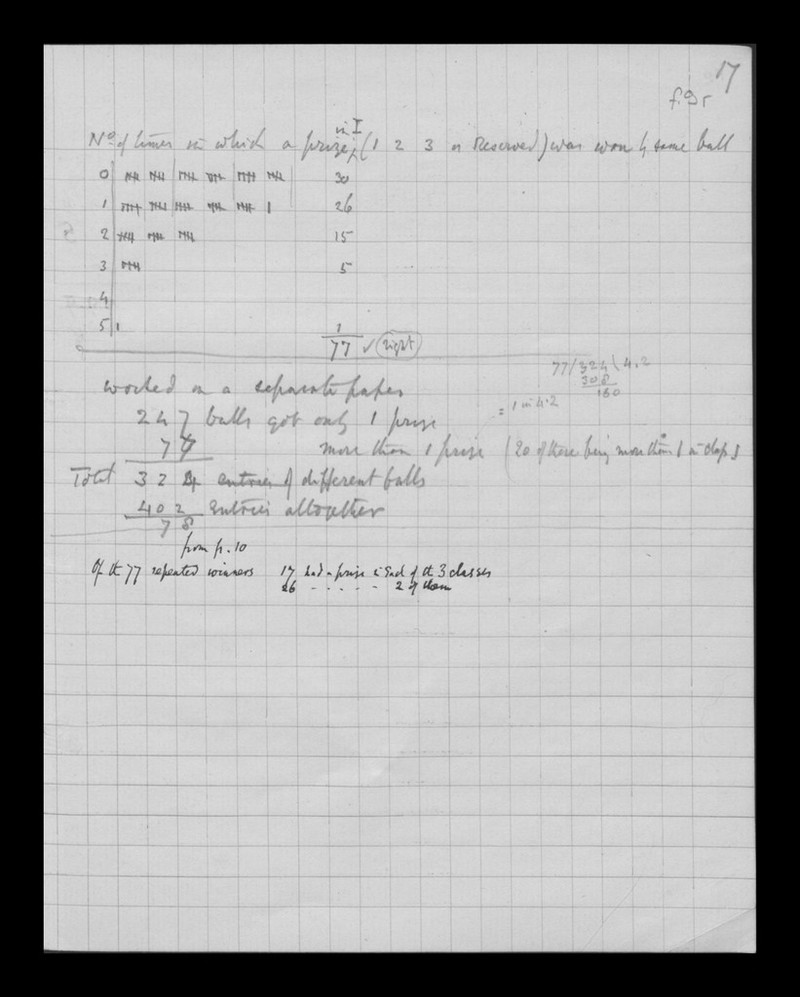 17
f.9r
in I
No of times in which a prize (1 2 3 or Reserved) was won by same ball
0 30
1 26
2 15
3 5
4
5 1
77 ✓ right
77/324\4.2
308
160
= 1 in 4.2
worked on a separate paper
247 balls got only 1 prize
77 more than 1 prize (20 of these being more than 1 in class I
Total 324 entries of different balls
402 Entries altogether
78
from p. 10
Of the 77 repeated winners 17 had a prize in Each of the 3 classes
26 - - - - - 2 of them